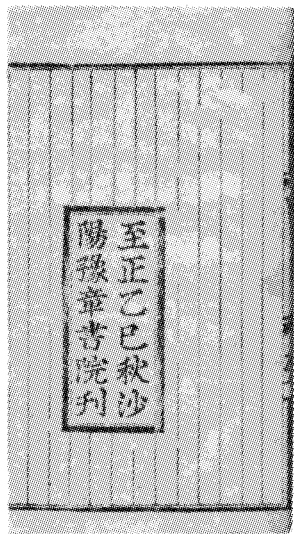 至正乙巳秋沙
陽豫章書院刊